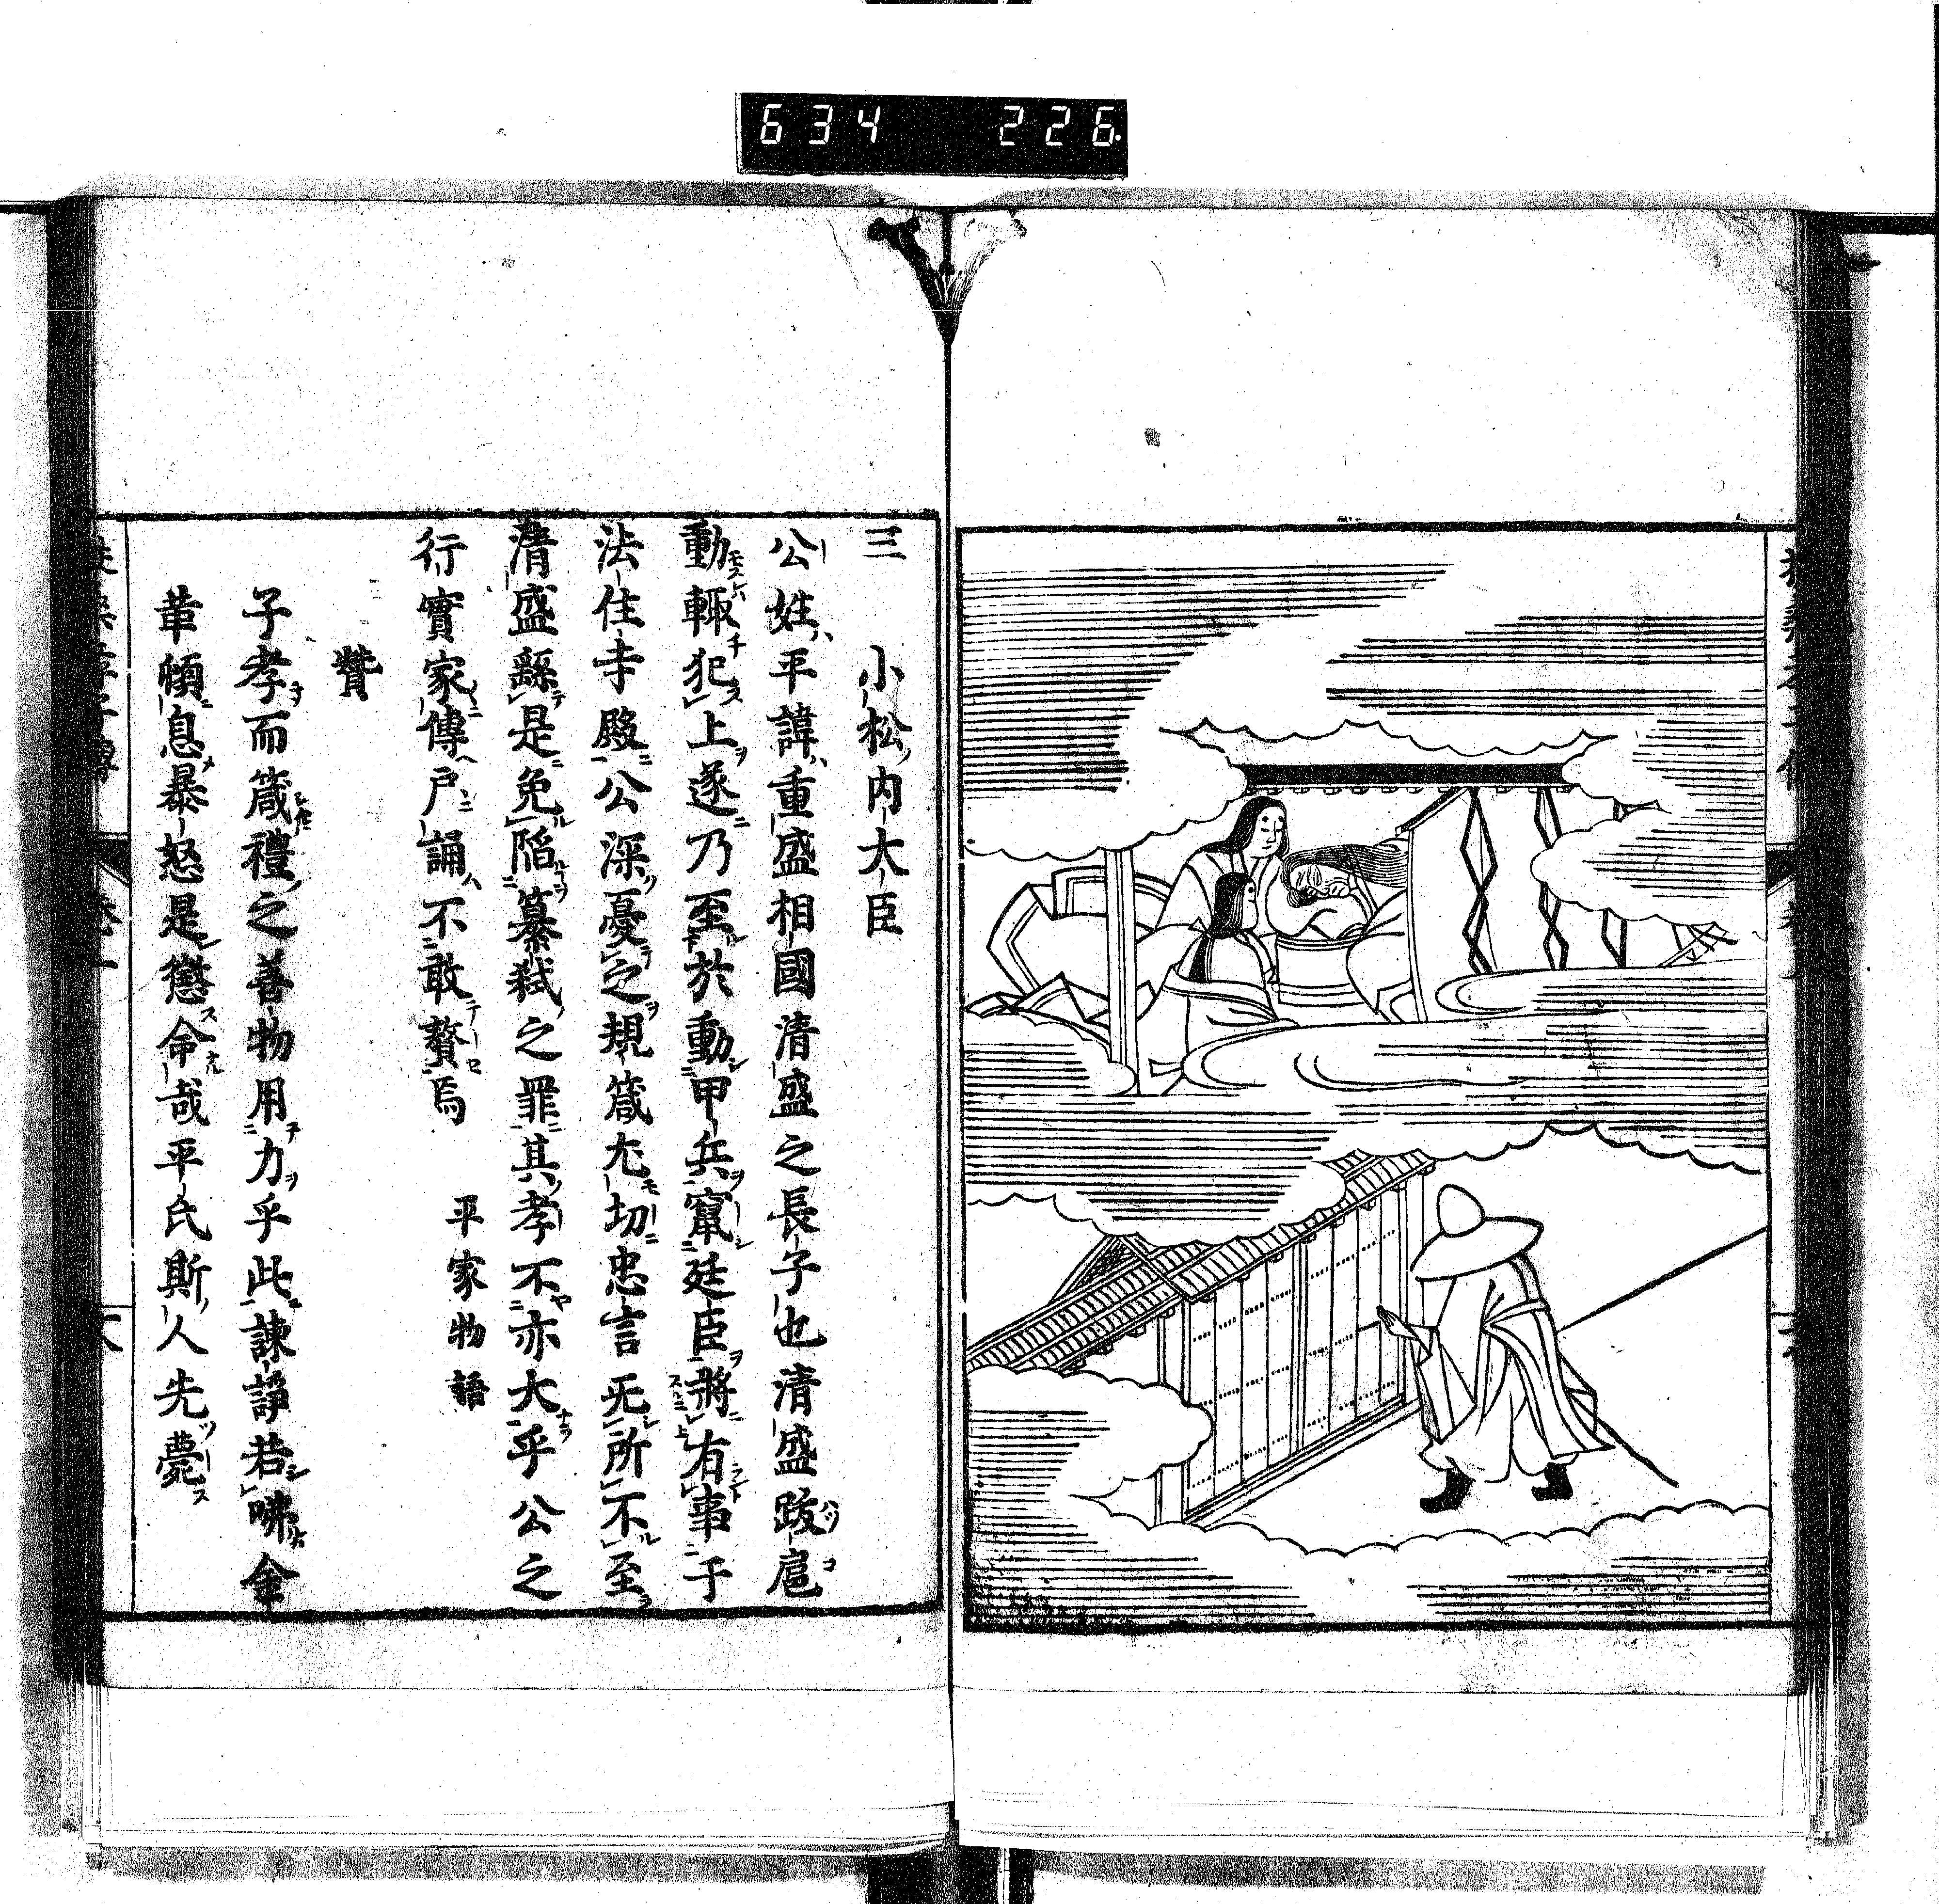 634 226
三 小松内大臣
公姓平諱重盛相國清盛之長子也清盛跋扈
動輙犯上遂乃至於動甲兵竄廷臣將有事于
法住寺殿公深憂之規箴尤切忠言无所不至
清盛繇是免陷簒弑之罪其孝不亦大乎公之
行實家傳戸誦不敢贅焉 平家物語
贊
子孝而箴禮之善物用力乎此諫諍若咈金
革頓息暴怒是懲命哉平氏斯人先薨